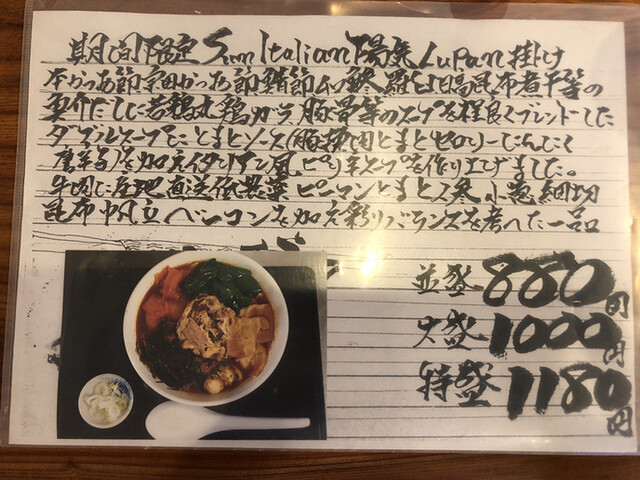 期間限定 Sim Italian 陽気 Lupan 掛け
本かつお節宗田かつお節鯖節ムロ鯵羅臼日高昆布煮干等の
魚介だしに若鶏丸鶏ガラ豚骨等のスープを程良くブレンドした
ダブルスープにとまとソース(豚挽肉とまとセロリーにんにく
唐辛子)を加えイタリアン風ピリ辛スープを作り上げました。
牛肉に産地直送低農薬ピーマンとまと 小葱細切
昆布帆立ベーコンを加え彩りバランスを考へた一品
並盛 880円
大盛 1000円
特盛 1180円